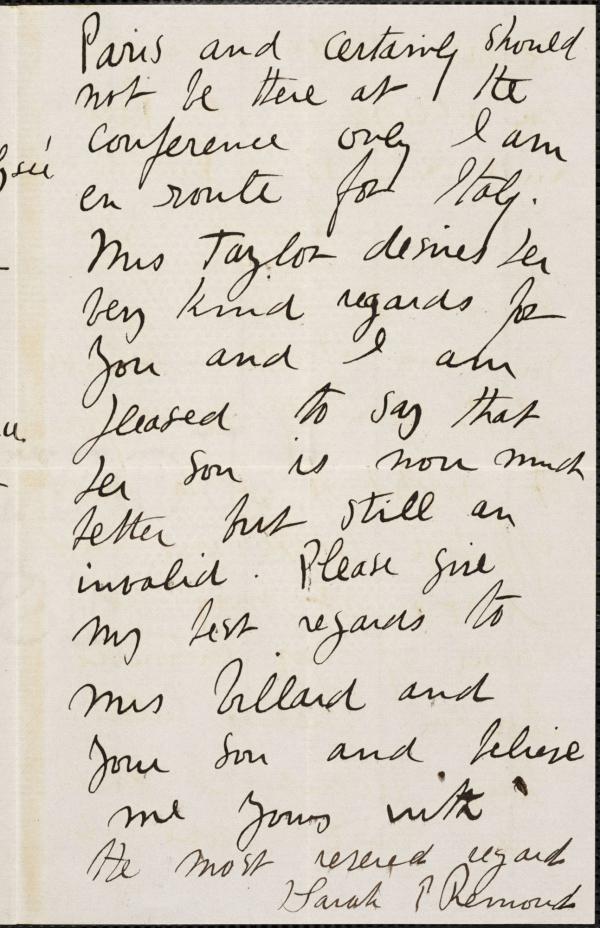 Paris and certainly should
not be there at the
Conference only I am
en route for Italy.
Mrs Taylor desires her
very kind regards for
you and I am
pleased to say that
her son is now much
better but still an
invalid. Please give
my best regards to
Mrs Villard and
your son and believe
me yours with
the most regard
Sarah P Remond